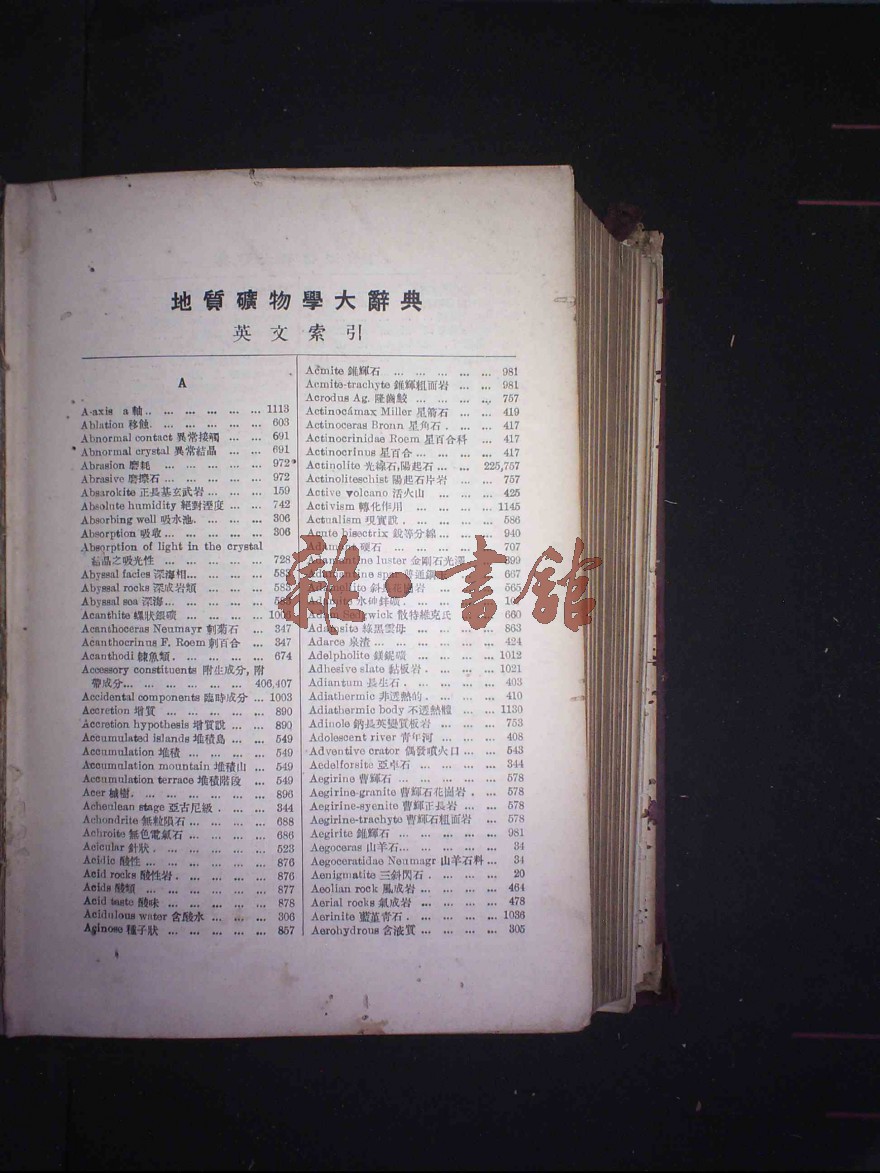 地質礦物學大辭典
英文索引
A
A-axis a軸 ... 1113
Ablation 移蝕 ... 603
Abnormal contact 異常接觸 ... 691
Abnormal crystal 異常結晶 ... 691
Abrasion 磨耗 ... 972
Abrasive 磨擦石 ... 972
Absarokite 正長基玄武岩 ... 159
Absolute humidity 絕對溼度 ... 742
Absorbing well 吸水池 ... 306
Absorption 吸收 ... 306
Absorption of light in the crystal
結晶之吸光性 ... 728
Abyssal facies 深海相 ... 583
Abyssal rocks 深成岩類 ... 583
Abyssal sea 深海 ... 583
Acanthite 螺狀銀礦
Acanthoceras Neumayr 刺菊石 ... 347
Acanthocrinus F. Roem 刺百合 ... 347
Acanthodi 棘魚類 ... 674
Accessory constituents 附生成分, 附
帶成分 ... 406,407
Accidental components 臨時成分 ... 1003
Accretion 增質 ... 890
Accretion hypothesis 增質說 ... 890
Accumulated islands 堆積島 ... 549
Accumulation 堆積 ... 549
Accumulation mountain 堆積山 ... 549
Accumulation terrace 堆積階段 ... 549
Acer 槭樹 ... 896
Acheulean stage 亞古尼級 ... 344
Achondrite 無粒隕石 ... 688
Achroite 無色電氣石 ... 686
Acicular 針狀 ... 523
Acidic 酸性 ... 876
Acid rocks 酸性岩 ... 876
Acids 酸類 ... 877
Acid taste 酸味 ... 878
Acidulous water 含酸水 ... 306
Aginose 種子狀 ... 857
Acmite 錐輝石 ... 981
Acmite-trachyte 錐輝粗面岩 ... 981
Acrodus Ag. 隆齒鮫 ... 757
Actinocámax Miller 星箭石 ... 419
Actinoceras Bronn 星角石 ... 417
Actinocrinidae Roem 星百合科 ... 417
Actinocrinus 星百合 ... 417
Actinolite 光線石,陽起石 ... 225,757
Actinoliteschist 陽起石片岩 ... 757
Active volcano 活火山 ... 425
Activism 轉化作用 ... 1145
Actualism 現實說 ... 586
Acute bisectrix 銳等分線 ... 940
Adamant 硬石 ... 707
Adamantine luster 金剛石光澤 ... 399
Adamantine spar ... 667
Adamellite ... 565
Adamite 水砷鋅礦
Adam Sedgwick 散特維克氏 ... 660
Adamsite 綠黑雲母 ... 863
Adarce 泉渣 ... 424
Adelpholite 鎂鈮礦 ... 1012
Adhesive slate 黏板岩 ... 1021
Adiantum 長生石 ... 403
Adiathermic 非透熱的 ... 410
Adiathermic body 不透熱體 ... 1130
Adinole 鈉長英變質板岩 ... 753
Adolescent river 青年河 ... 408
Adventive crator 偶發噴火口 ... 543
Aedelforsite 亞卓石 ... 344
Aegirine 曹輝石 ... 578
Aegirine-granite 曹輝石花崗岩 ... 578
Aegirine-syenite 曹輝正長岩 ... 578
Aegirine-trachyte 曹輝石粗面岩 ... 578
Aegirite 錐輝石 ... 981
Aegoceras 山羊石 ... 34
Aegoceratidae Neumagr 山羊石科 ... 34
Aenigmatite 三斜閃石 ... 20
Aeolian rock 風成岩 ... 464
Aerial rocks 氣成岩 ... 478
Aerinite 藍堇青石 ... 1036
Aerohydrous 含液質 ... 305
雜·書館